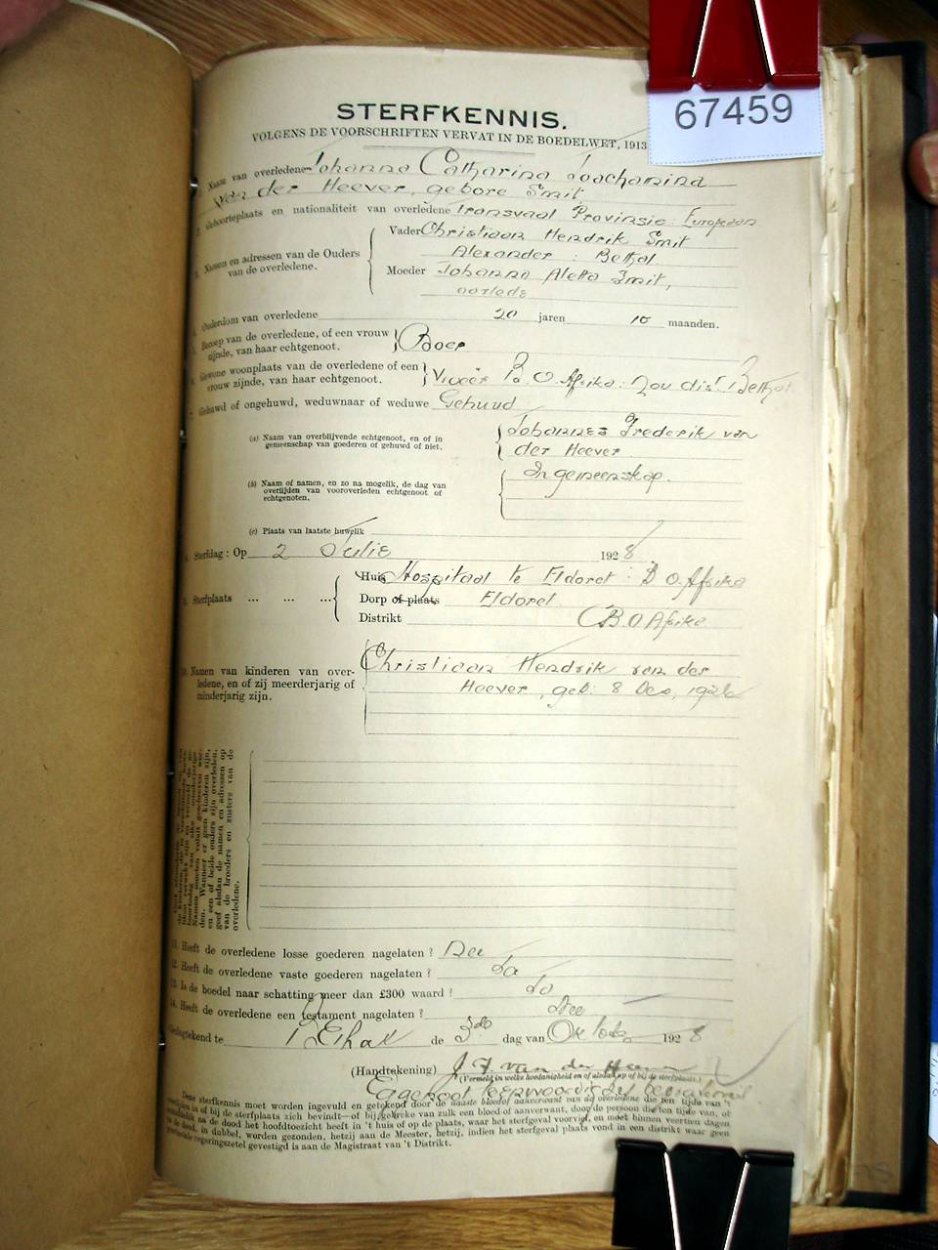 67459
STERFKENNIS.
VOLGENS DE VOORSCHRIFTEN VERVAT IN DE BOEDELWET, 1913
Naam van overledene Johanna Catharina Joachamina
van der Heever, gebore Smit
Geboorteplaats en nationaliteit van overledene Transvaal Provinsie: Europeaan
3. Namen en adressen van de Ouders van de overledene.
Vader Christiaan Hendrik Smit
Alexander: Bethal
Moeder Johanna Aletta Smit,
oorlede
Ouderdom van overledene 20 jaren 10 maanden.
Beroep van de overledene, of een vrouw
zijnde, van haar echtgenoot. Boer
Gewone woonplaats van de overledene of een
vrouw zijnde, van haar echtgenoot. Vroeër B. O. Afrika: Nou dist. Bethal
Gehuwd of ongehuwd, weduwnaar of weduwe Gehuud
(a) Naam van overblijvende echtgenoot, en of in
gemeenschap van goederen of gehuwd of niet.
Johannes Frederik van
der Heever
(b) Naam of namen, en zo na mogelik, de dag van
overlijden van vooroverleden echtgenoot of
echtgenoten.
In gemeenskap.
(c) Plaats van laatste huwelik
Sterfdag: Op 2 Julie 1928
Sterfplaats ... ... ...
Huis Hospitaal te Eldoret: B O Afrika
Dorp of plaats Eldoret
Distrikt B O Afrika
10. Namen van kinderen van over-
ledene, en of zij meerderjarig of
minderjarig zijn.
Christiaan Hendrik van der
Heever, geb: 8 Des, 1926
den. Wanneer er geen kinderen zijn,
en een of beide ouders zijn overleden,
geef alsdan de namen en adressen op
van de broeders en zusters van de
overledene.
11. Heeft de overledene losse goederen nagelaten? Nee
12. Heeft de overledene vaste goederen nagelaten? Ja
13. Is de boedel naar schatting meer dan £300 waard? Ja
14. Heeft de overledene een testament nagelaten? Nee
Gedagtekend te Bethal de 3de dag van Oktober 1928
(Handtekening) J F van der Heever
(Vermeld in welke hoedanigheid en of alsdan op of bij de sterfplaats).
Eggenoot teenwoordig
Deze sterfkennis moet worden ingevuld en getekend door de naaste bloed of aanverwant van de overledene die ten tijde van 't
overlijden in of bij de sterfplaats zich bevindt—of bij gebreke van zulk een bloed of aanverwant, door de persoon die ten tijde van, of
onmiddellik na de dood het hoofdtoezicht heeft in 't huis of op de plaats, waar het sterfgeval voorviel, en moet binnen veertien dagen
na de dood, in dubbel, worden gezonden, hetzij aan de Meester, hetzij, indien het sterfgeval plaats vond in een distrikt waar geen
provinciale regeringszetel gevestigd is aan de Magistraat van 't Distrikt.